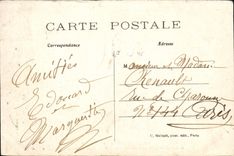 CARTE POSTALE
Correspondance
Adresse
Amitiés
Edouard
Marguerite
Monsieur et Madame
Renault
rue de Charonne
No 144 Paris